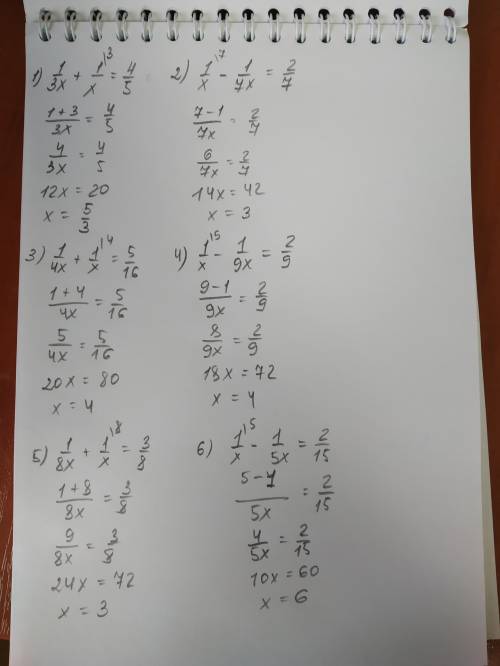 1) 1/3x + 1/x \3 = 4/5
(1+3)/3x = 4/5
4/3x = 4/5
12x = 20
x = 5/3
2) 1/x \7 - 1/7x = 2/7
(7-1)/7x = 2/7
6/7x = 2/7
14x = 42
x = 3
3) 1/4x + 1/x \4 = 5/16
(1+4)/4x = 5/16
5/4x = 5/16
20x = 80
x = 4
4) 1/x \5 - 1/9x = 2/9
(9-1)/9x = 2/9
8/9x = 2/9
18x = 72
x = 4
5) 1/8x + 1/x \8 = 3/8
(1+8)/8x = 3/8
9/8x = 3/8
24x = 72
x = 3
6) 1/x \5 - 1/5x = 2/15
(5-1)/5x = 2/15
4/5x = 2/15
10x = 60
x = 6